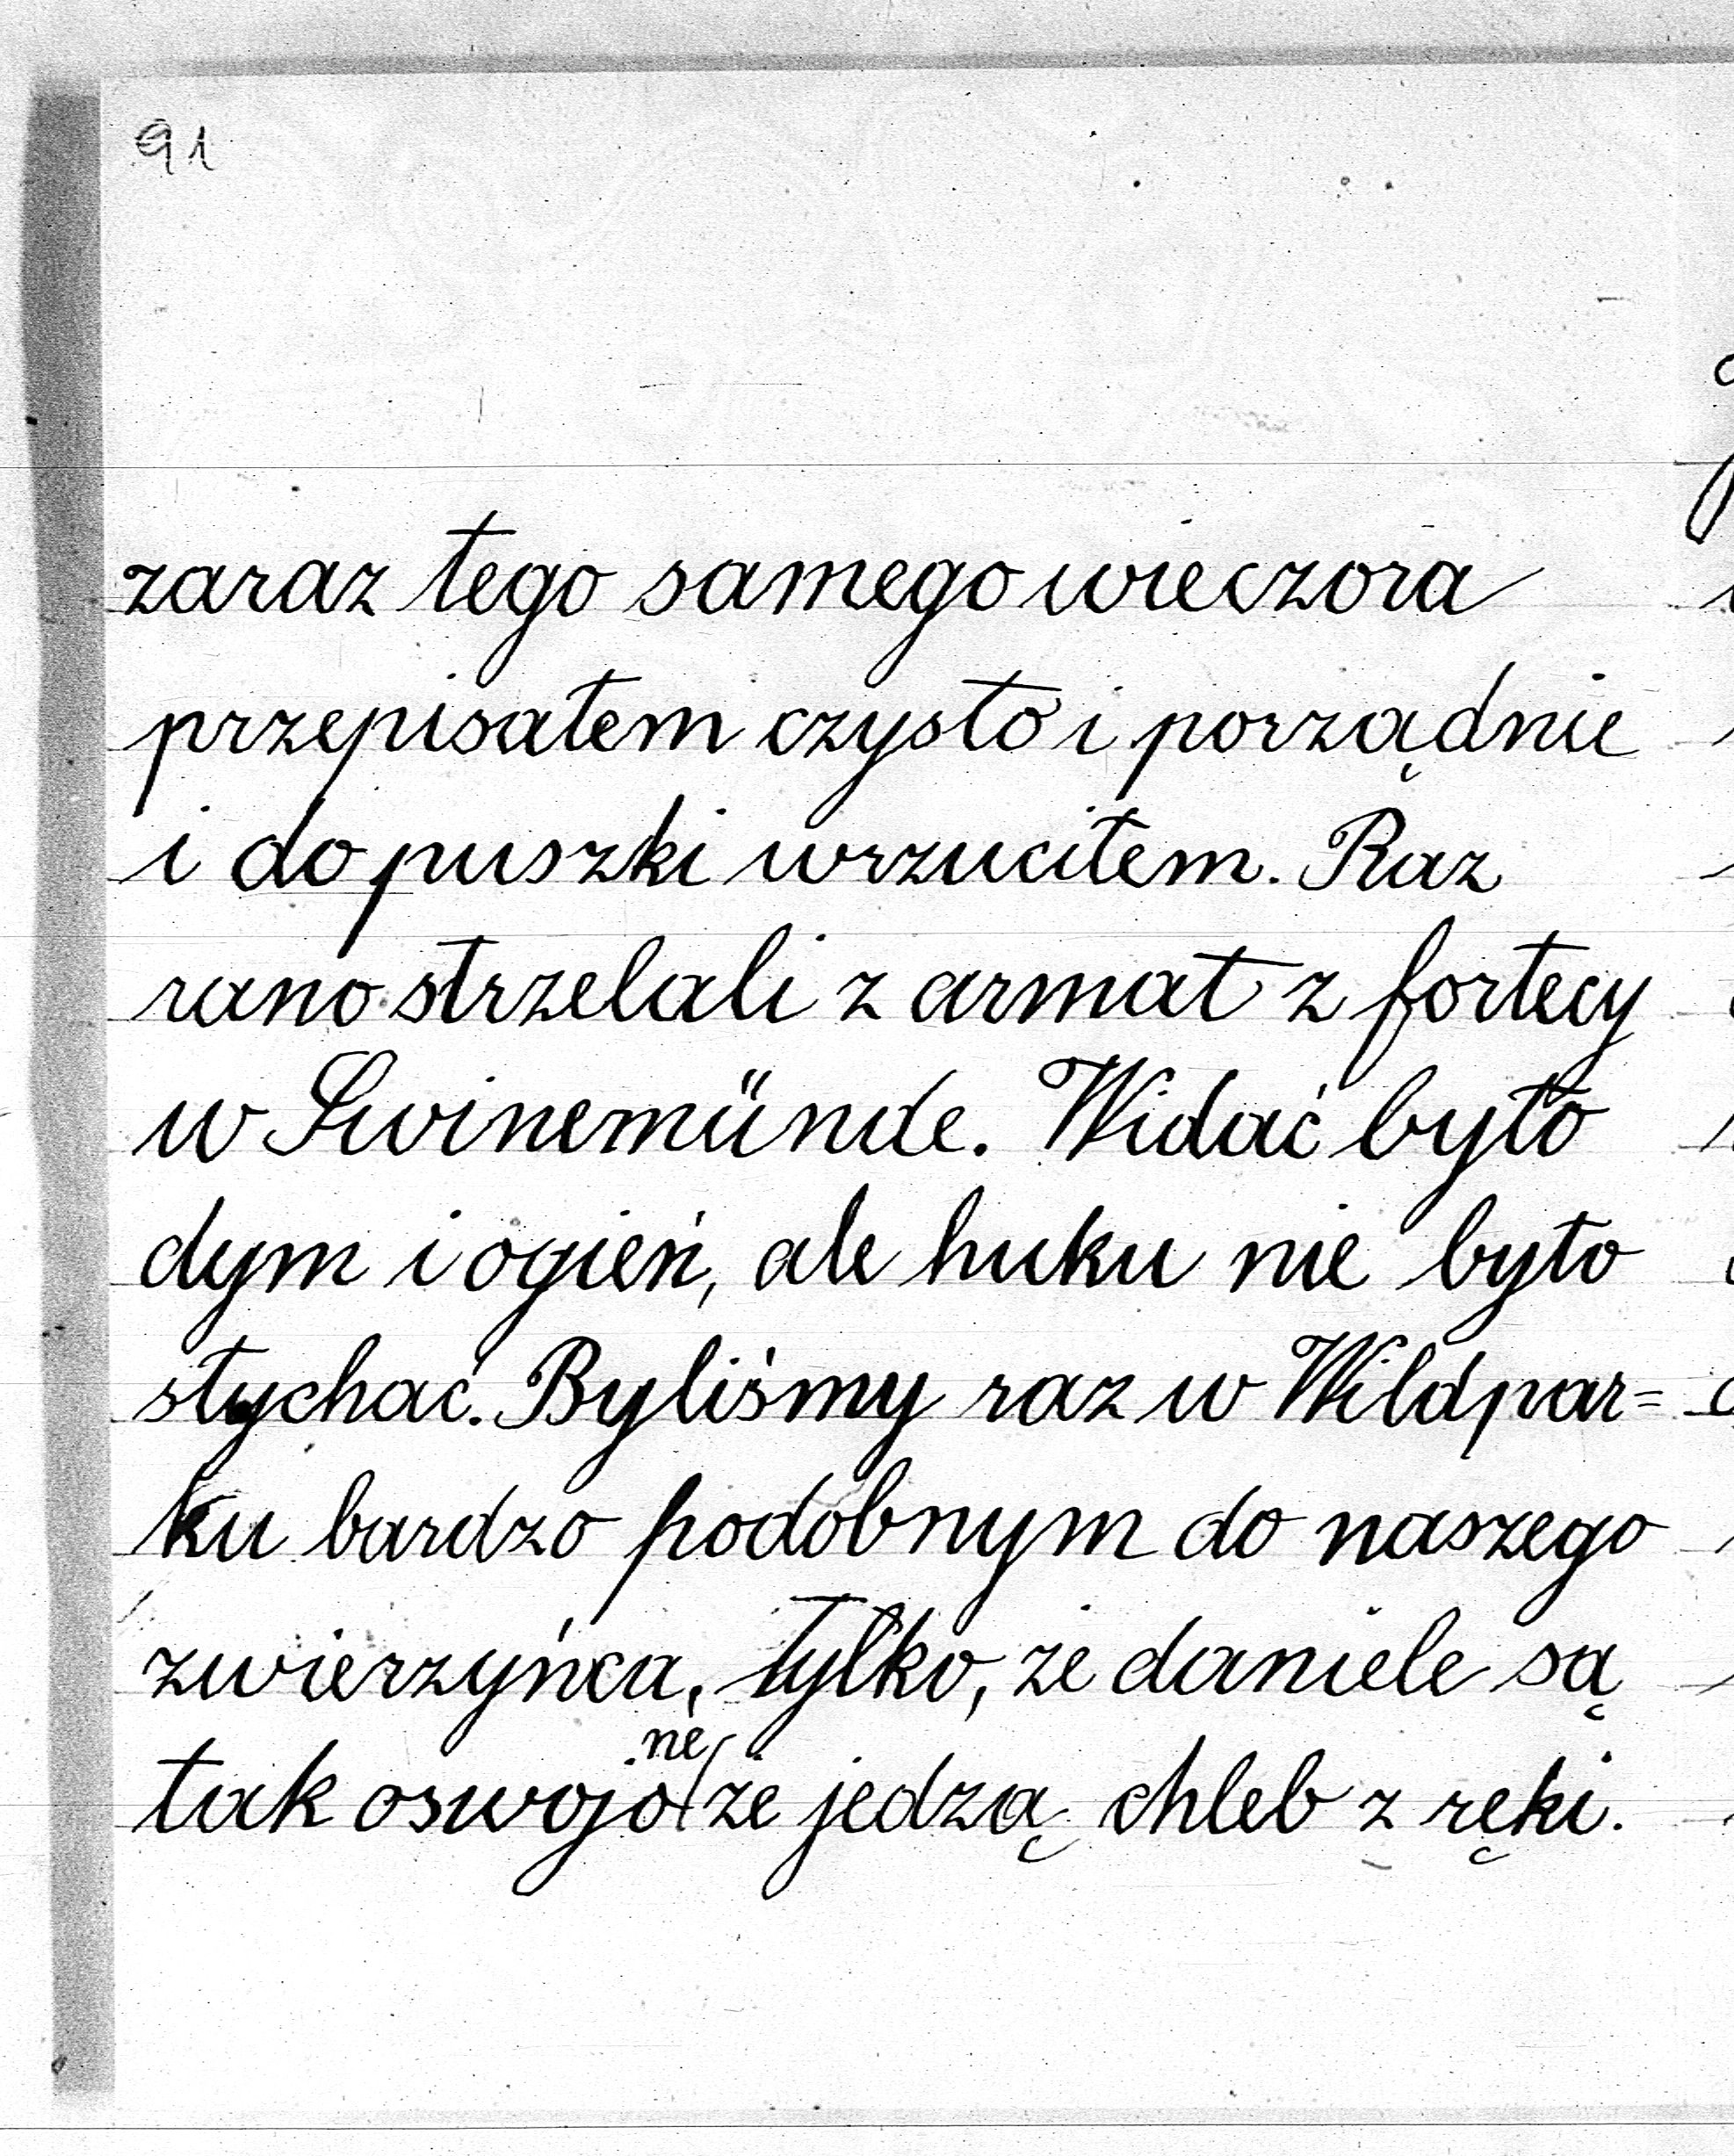 91
zaraz tego samego wieczora
przepisałem czysto i porządnie
i do puszki wrzuciłem. Raz
rano strzelali z armat z fortecy
w Swinemünde. Widać było
dym i ogień, ale huku nie było
słychać. Byliśmy raz w Wildpar=
ku bardzo podobnym do naszego
zwierzyńca, tylko, że daniele są
tak oswojone że jedzą chleb z ręki.